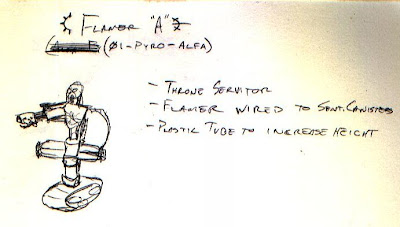 FLAMER "A"
(Ø1-PYRO-ALFA)
- THRONE SERVITOR
- FLAMER WIRED TO SENT. CANISTERS
- PLASTIC TUBE TO INCREASE HEIGHT